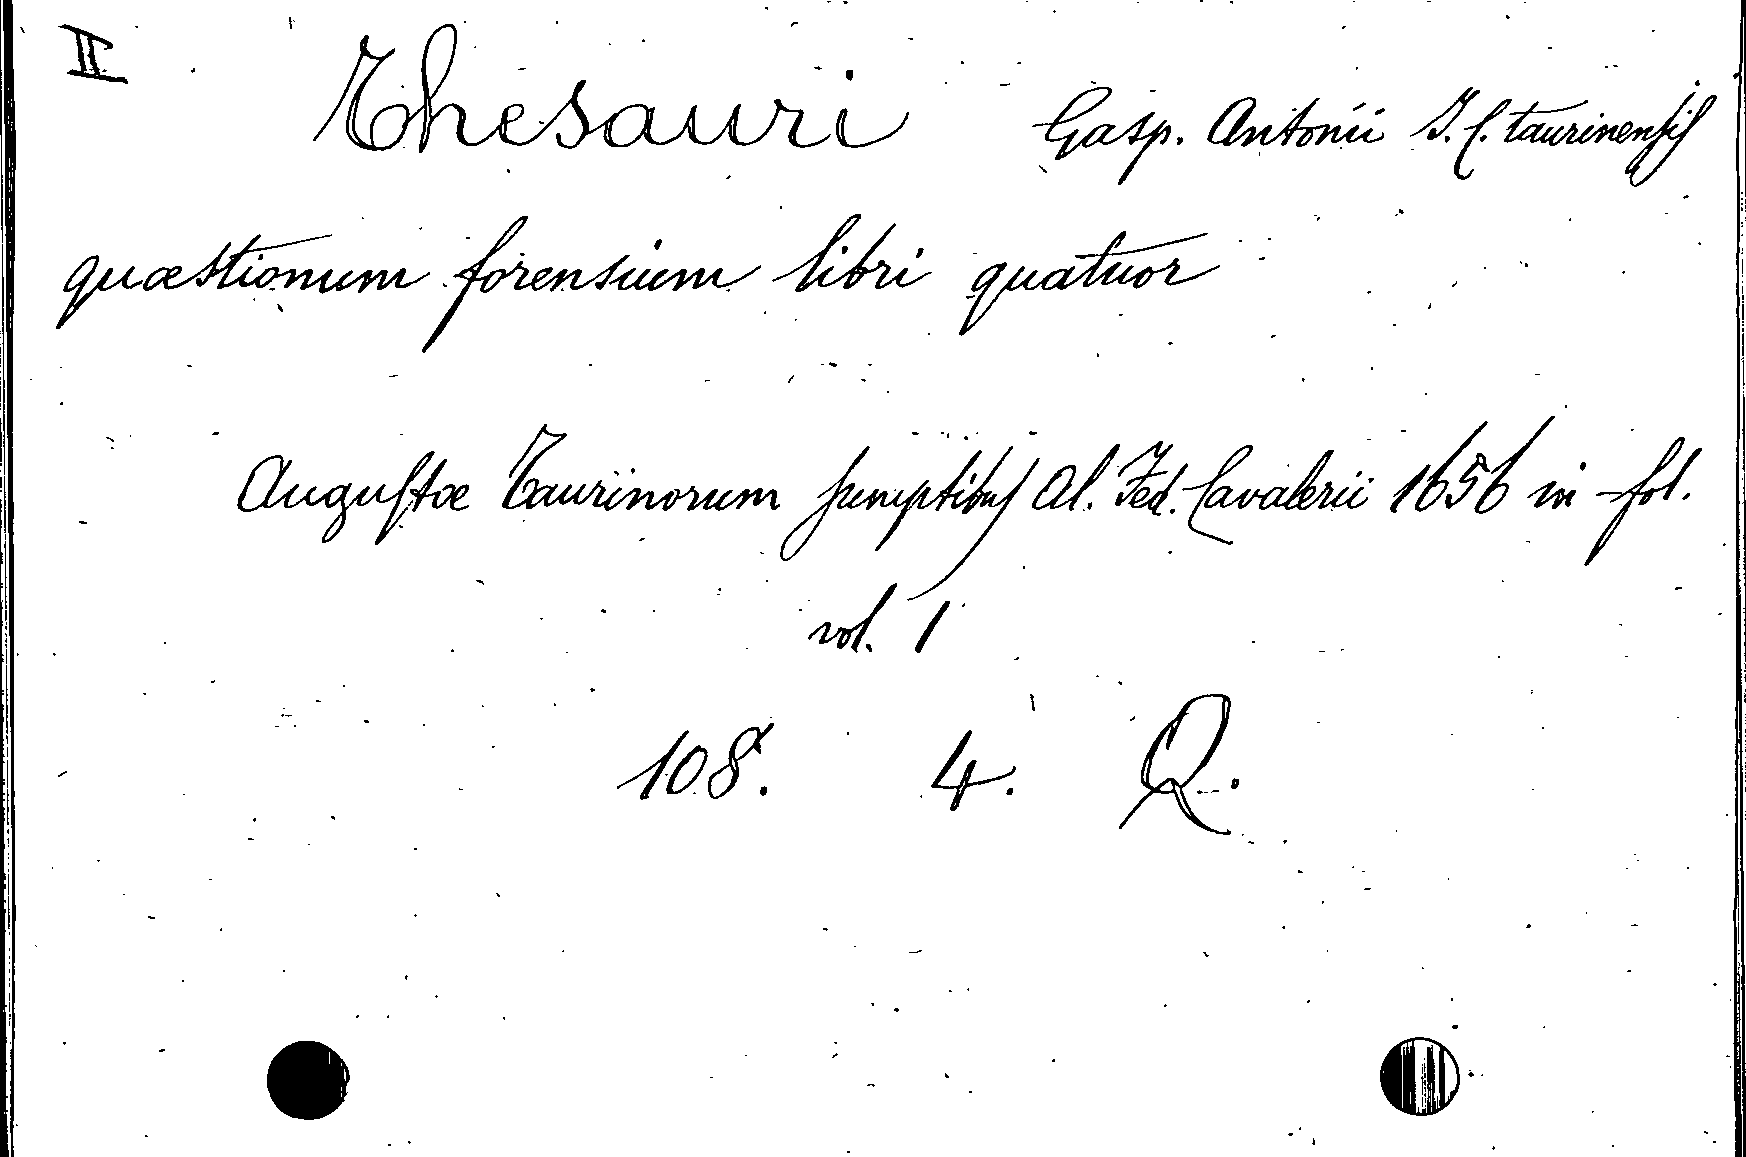 II
Thesauri Gasp. Antonii I. C. taurinensis
quæstionum forensium libri quatuor
Augustæ Taurinorum sumptibus Al. Fed. Cavalerii 1656 in fol.
vol. 1
108. 4. Q.